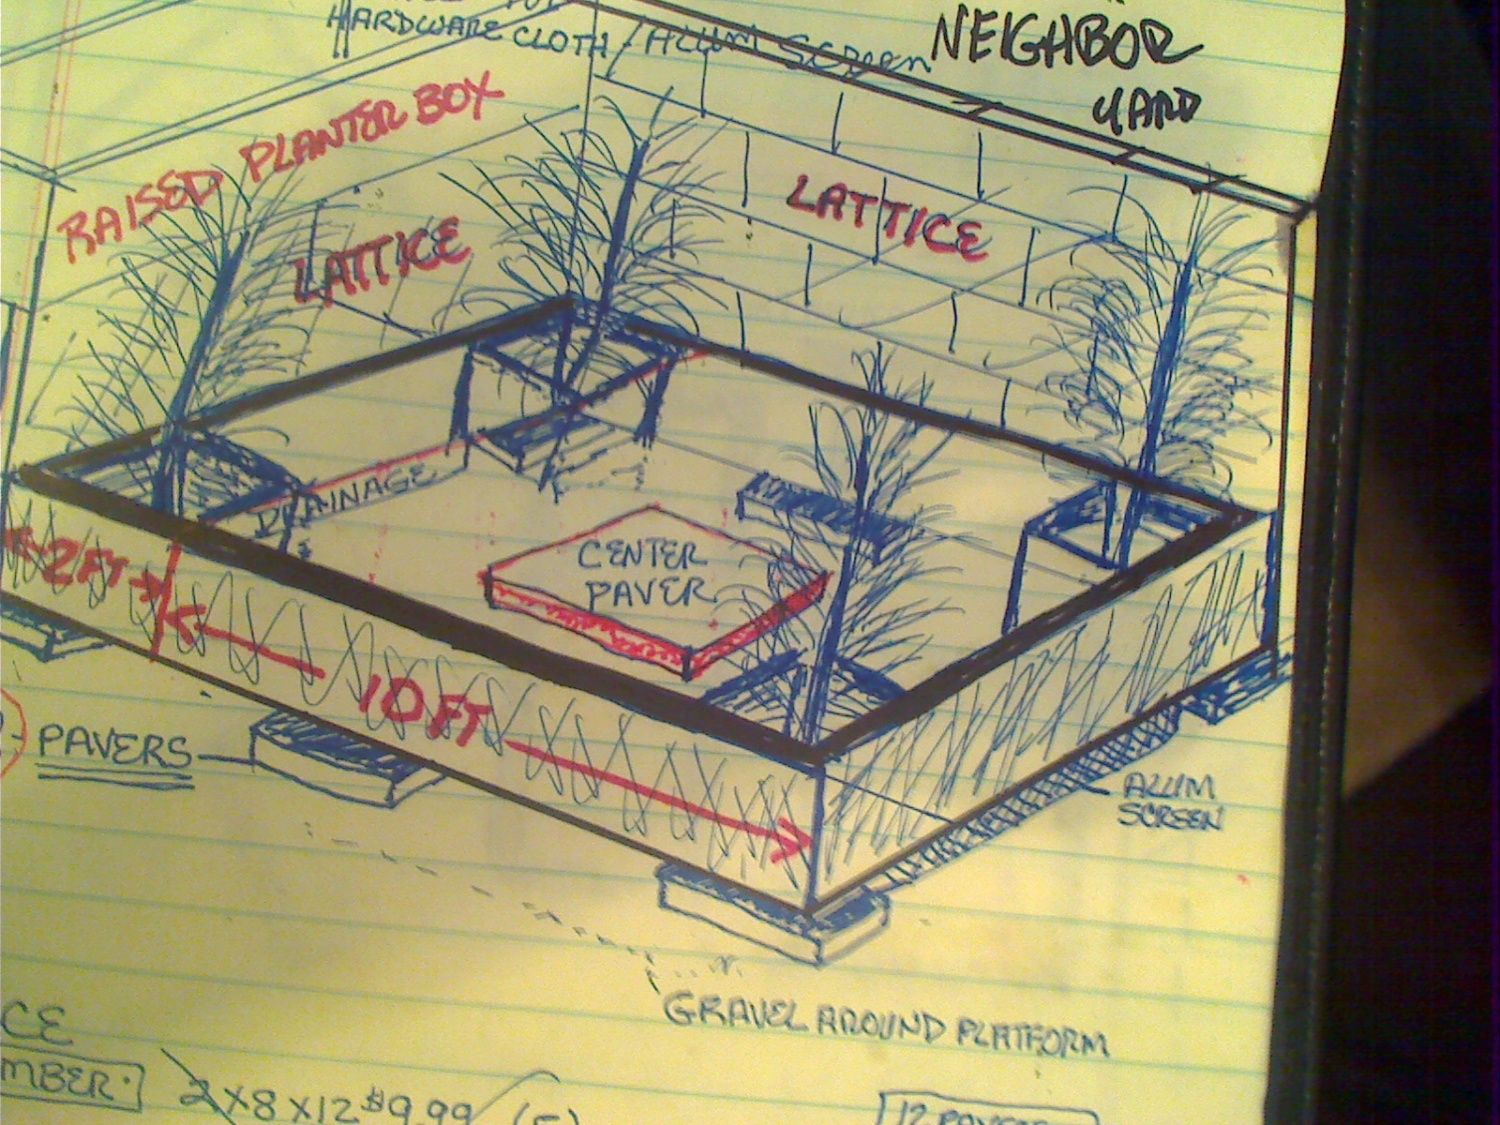 HARDWARE CLOTH / ALUM SCREEN
NEIGHBOR
YARD
RAISED PLANTER BOX
LATTICE
LATTICE
DRAINAGE
CENTER
PAVER
2FT
10FT
PAVERS
ALUM
SCREEN
GRAVEL AROUND PLATFORM
CE
MBER.
2x8x12 $9.99
12 PAVERS